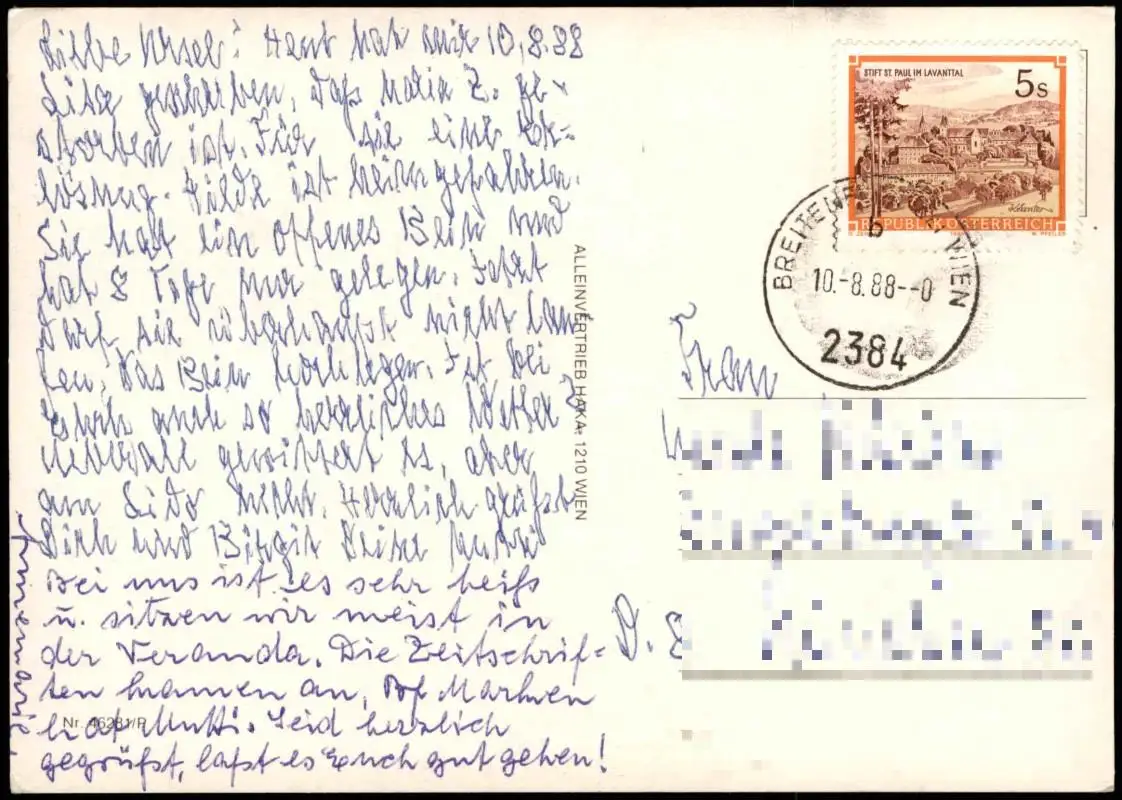 Liebe Ursel! Heut hat mir 10.8.88
Liese geschrieben, daß Maria Z. ge-
storben ist. Für sie eine Er-
lösung. Hilde ist heimgefahren.
Sie hat ein offenes Bein und
hat 8 Tage nur gelegen. Jetzt
darf sie überhaupt nicht lau
fen, das Bein hochlegen. Ist bei
Euch auch so herrliches Wetter?
Überall gewittert es, aber
am nicht. Herzlich grüßt
Dich und Birgit Deine Mutti
Bei uns ist es sehr heiß
u. sitzen wir meist in
der Veranda. Die Zeitschrif=
ten kamen an, Marken
hat Mutti. Seid herzlich
gegrüßt, laßt es Euch gut gehen!
Annemarie.
Nr. 46281/P
ALLEINVERTRIEB HAKA, 1210 WIEN
STIFT ST. PAUL IM LAVANTTAL
5s
REPUBLIK ÖSTERREICH
W. PFEILER
BREITENF WIEN
b
10.-8.88--0
2384
Frau
D.